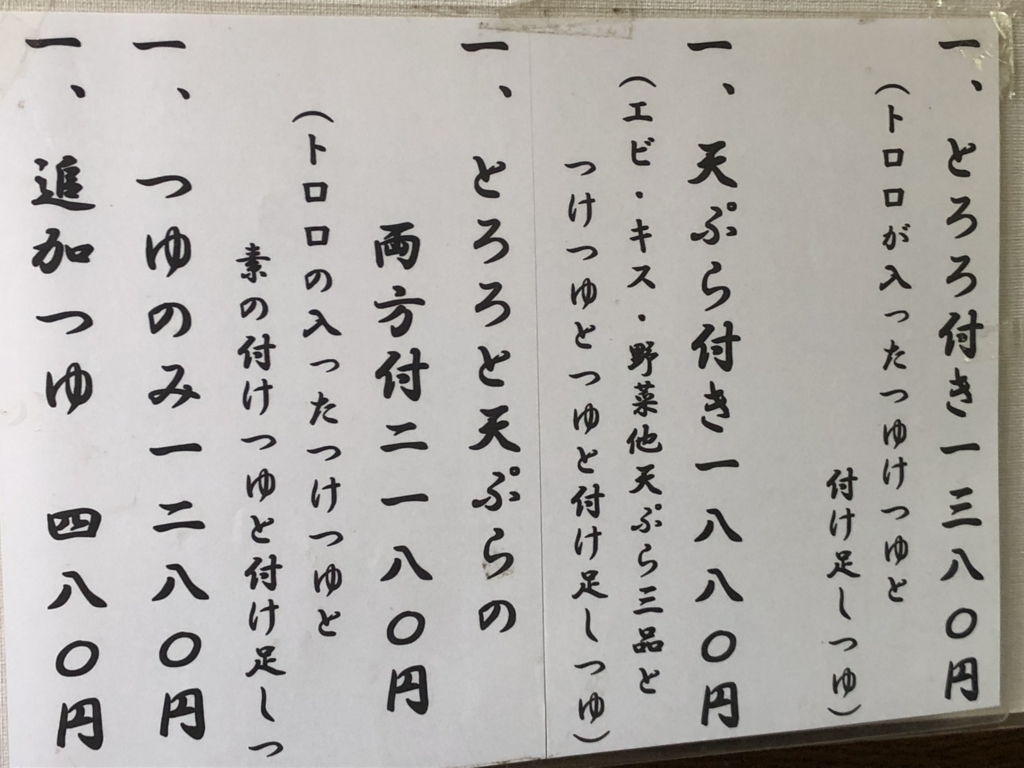 一、とろろ付き一三八〇円
（トロロが入ったつゆけつゆと
付け足しつゆ）
一、天ぷら付き一八八〇円
（エビ・キス・野菜他天ぷら三品と
つけつゆとつゆと付け足しつゆ）
一、とろろと天ぷらの
両方付二一八〇円
（トロロの入ったつけつゆと
素の付けつゆと付け足しつ
一、つゆのみ一二八〇円
一、追加つゆ 四八〇円